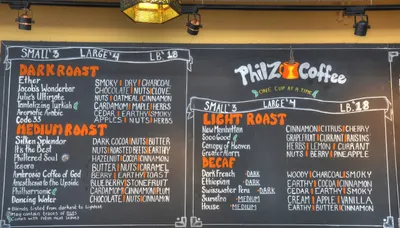 SMALL $3 LARGE $4 LB $18
DARK ROAST
Ether SMOKY | DRY | CHARCOAL
Jacob's Wonderbar CHOCOLATE | NUTS | CLOVE
Julie's Ultimate NUTS | OATMEAL | CINNAMON
Tantalizing Turkish CARDAMOM | MAPLE | HERBS
Aromatic Arabic CEDAR | EARTHY | SMOKY
Code 33 APPLES | NUTS | HERBS
MEDIUM ROAST
Silken Splendor DARK COCOA | NUTS | BUTTER
It's the Best NUTS | ROASTED BEETS | EARTHY
Philtered Soul HAZELNUT | COCOA | CINNAMON
Tesora BUTTER | NUTS | CARAMEL
Ambrosia Coffee of God BERRY | EARTHY | TOAST
Anesthesia to the Upside BLUEBERRY | STONEFRUIT
Philharmonic CARDAMOM | CINNAMON | PLUM
Dancing Water CHOCOLATE | NUTS | CINNAMON
Blends listed from darkest to lightest
may contain traces of nuts
Philz Coffee
ONE CUP AT A TIME
SMALL $3 LARGE $4 LB $18
LIGHT ROAST
New Manhattan CINNAMON | CITRUS | CHERRY
SoooGood GRAPEFRUIT | CURRANT | RAISING
Canopy of Heaven HERBS | LEMON | CURRANT
Greater Alarm NUTS | BERRY | PINEAPPLE
DECAF
Dark French - DARK WOODY | CHARCOAL | SMOKY
Ethiopian - DARK EARTHY | COCOA | CINNAMON
Swisswater Peru - DARK CEDAR | EARTHY | SMOKY
Sumatra - MEDIUM CREAM | APPLE | VANILLA
House - MEDIUM EARTHY | BUTTER | CINNAMON